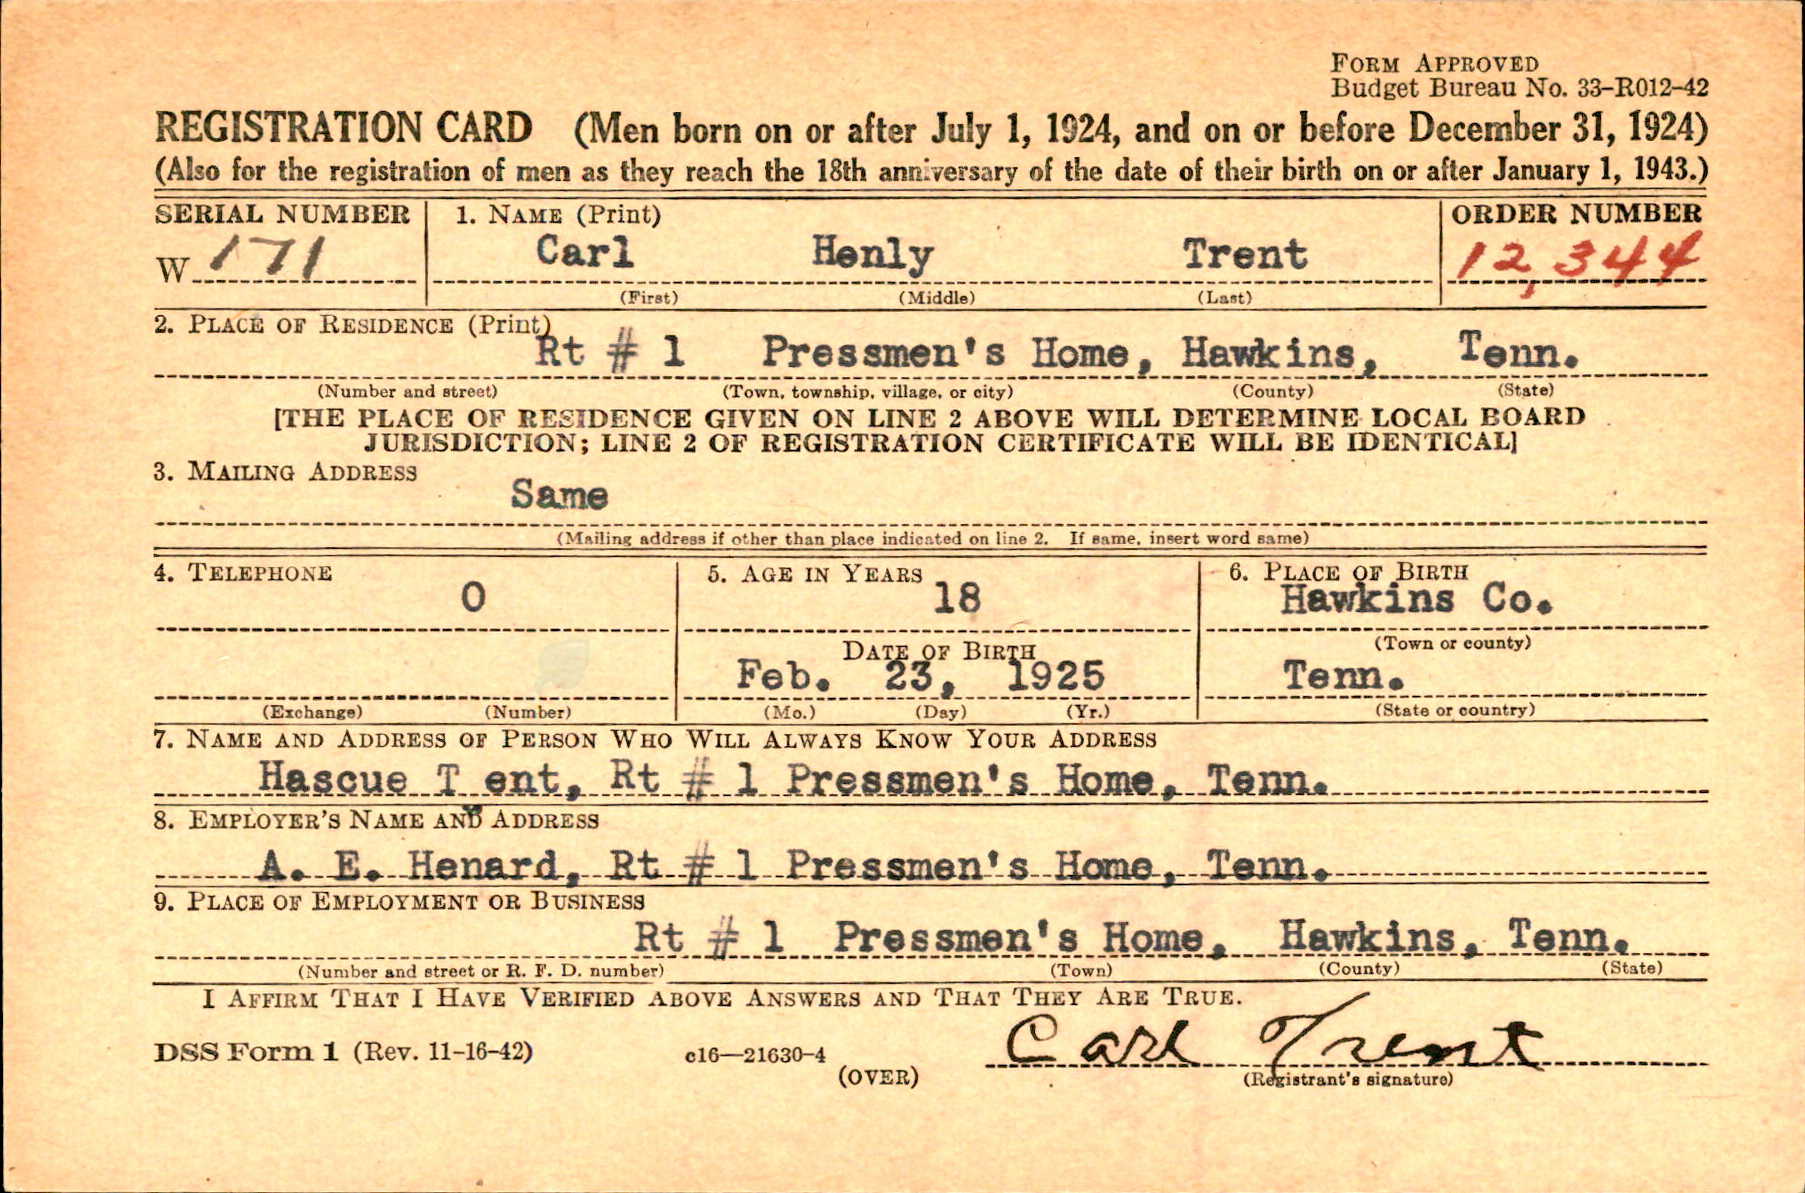 FORM APPROVED
Budget Bureau No. 33–R012–42
REGISTRATION CARD (Men born on or after July 1, 1924, and on or before December 31, 1924)
(Also for the registration of men as they reach the 18th anniversary of the date of their birth on or after January 1, 1943.)
SERIAL NUMBER 1. NAME (Print) ORDER NUMBER
W 171 Carl Henly Trent 12,344
(First) (Middle) (Last)
2. PLACE OF RESIDENCE (Print)
Rt # 1 Pressmen's Home, Hawkins, Tenn.
(Number and street) (Town, township, village, or city) (County) (State)
[THE PLACE OF RESIDENCE GIVEN ON LINE 2 ABOVE WILL DETERMINE LOCAL BOARD
JURISDICTION; LINE 2 OF REGISTRATION CERTIFICATE WILL BE IDENTICAL]
3. MAILING ADDRESS
Same
(Mailing address if other than place indicated on line 2. If same, insert word same)
4. TELEPHONE 5. AGE IN YEARS 6. PLACE OF BIRTH
0 18 Hawkins Co.
DATE OF BIRTH (Town or county)
Feb. 23, 1925 Tenn.
(Exchange) (Number) (Mo.) (Day) (Yr.) (State or country)
7. NAME AND ADDRESS OF PERSON WHO WILL ALWAYS KNOW YOUR ADDRESS
Hascue T ent, Rt # 1 Pressmen's Home, Tenn.
8. EMPLOYER'S NAME AND ADDRESS
A. E. Henard, Rt # 1 Pressmen's Home, Tenn.
9. PLACE OF EMPLOYMENT OR BUSINESS
Rt # 1 Pressmen's Home, Hawkins, Tenn.
(Number and street or R. F. D. number) (Town) (County) (State)
I AFFIRM THAT I HAVE VERIFIED ABOVE ANSWERS AND THAT THEY ARE TRUE.
DSS Form 1 (Rev. 11–16–42) c16—21630-4 Carl Trent
(OVER) (Registrant's signature)